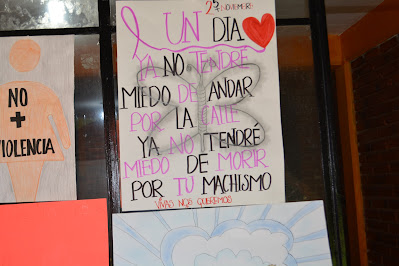 25 NOVIEMBRE
UN DIA
YA NO TENDRÉ
MIEDO DE ANDAR
POR LA CALLE
YA NO TENDRÉ
MIEDO DE MORIR
POR TU MACHISMO
VIVAS NOS QUEREMOS
NO
+
VIOLENCIA